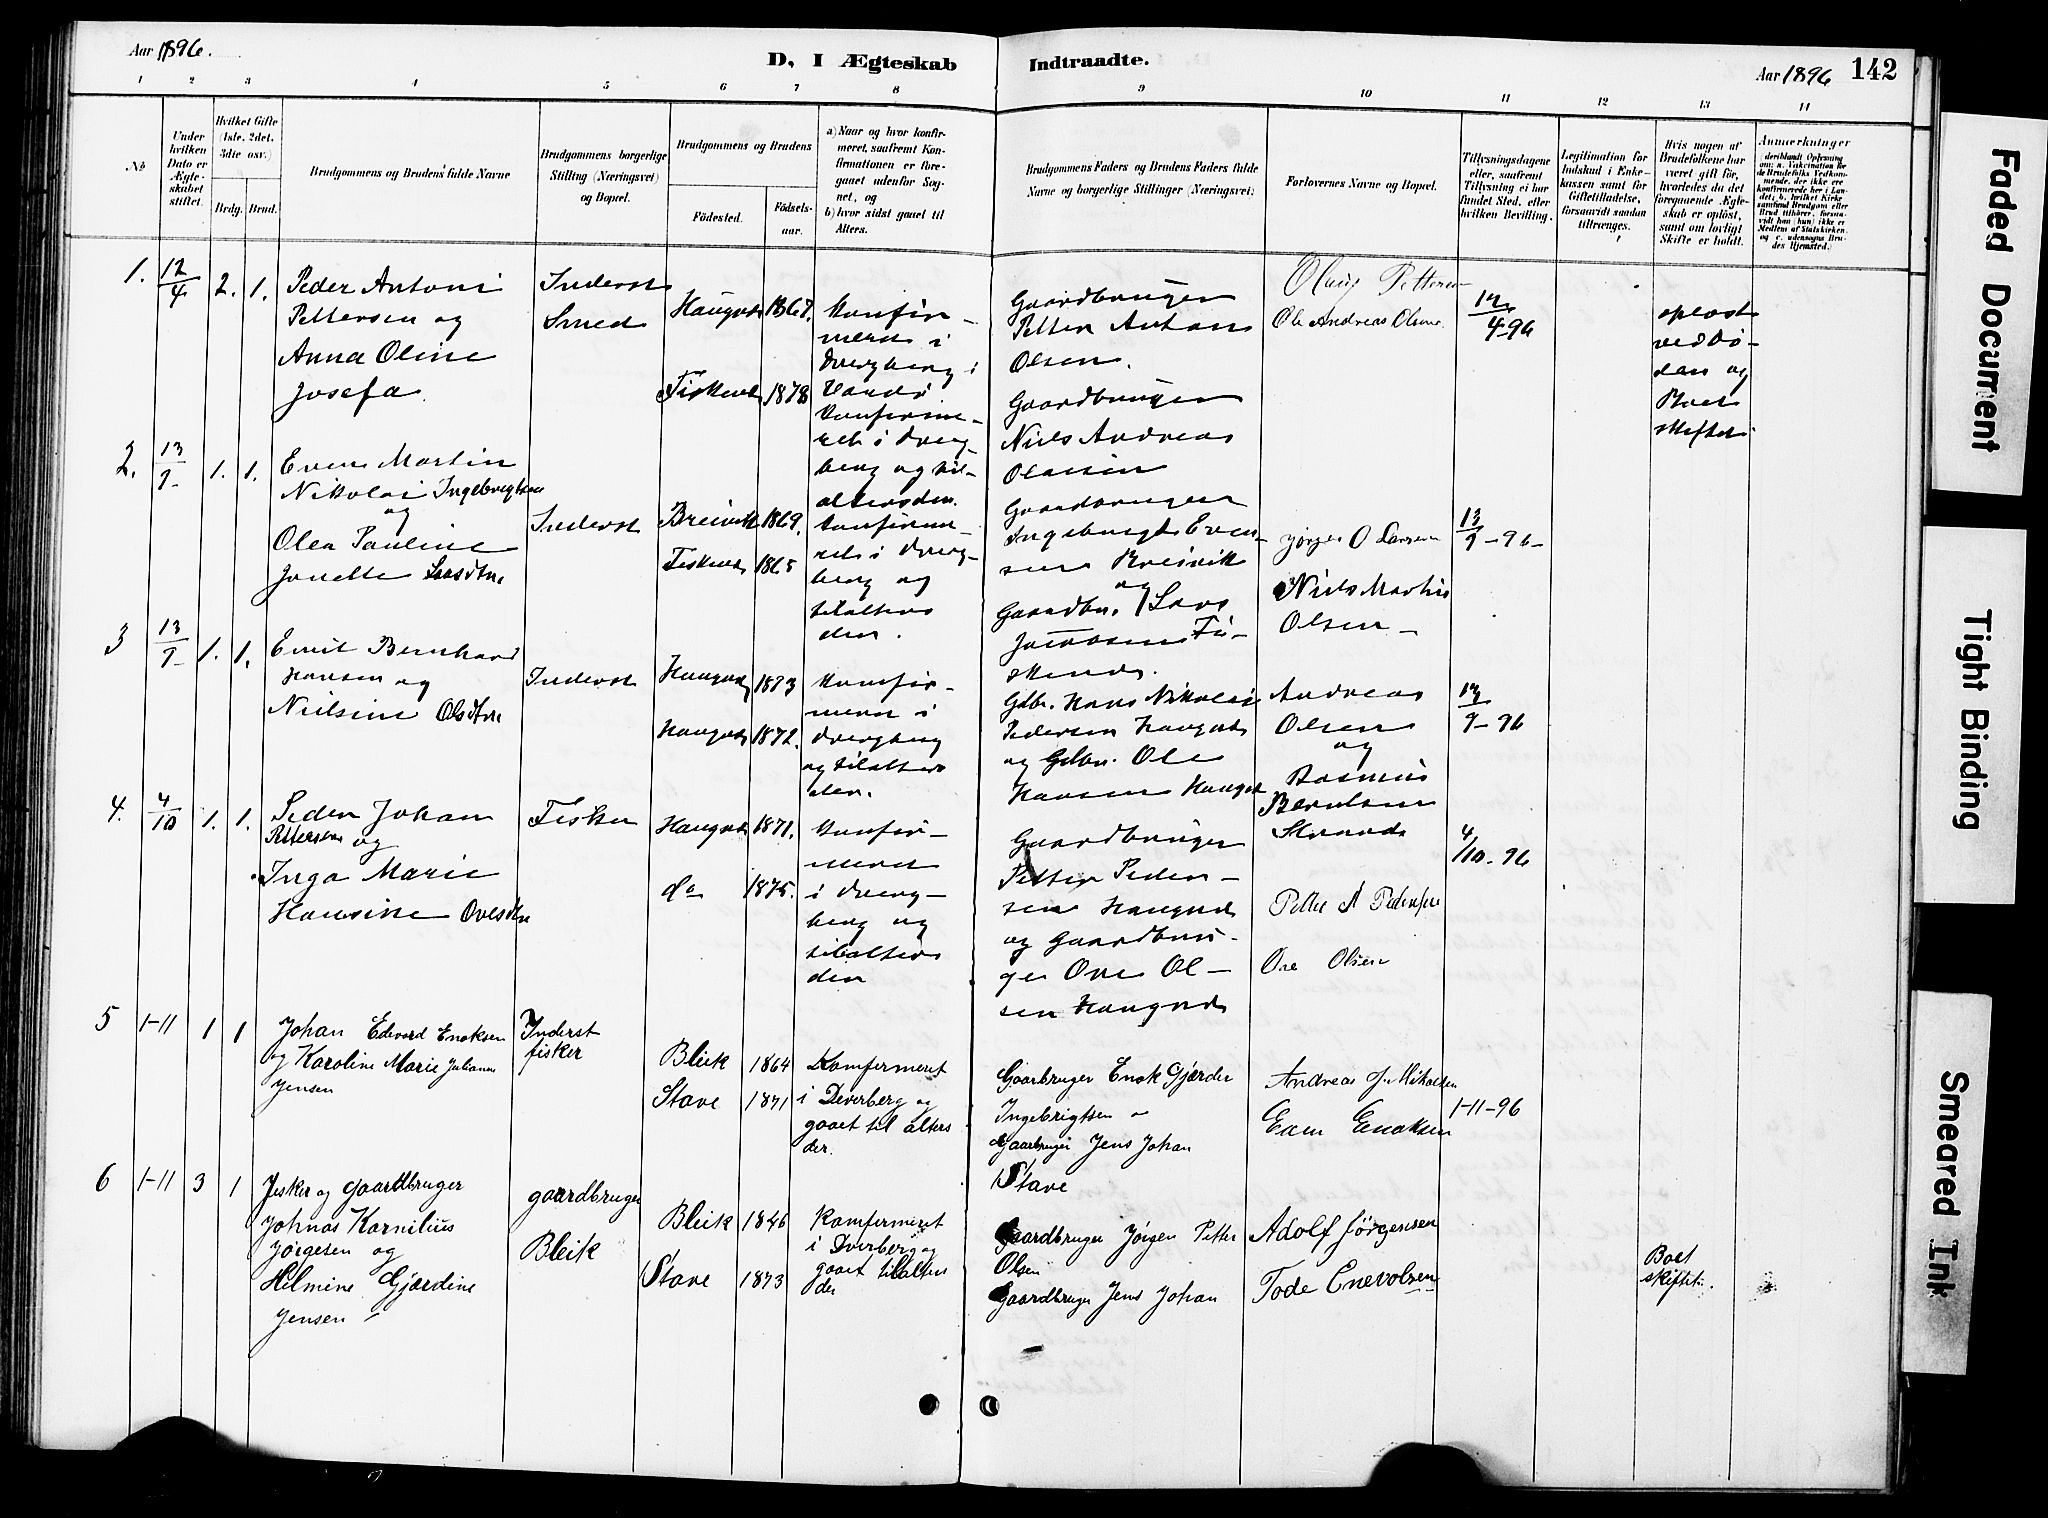 Aar 1896.
D, I Ægteskab
Indtraadte.
Aar 1896
142
1 2 3 4 5 6 7 8 9 10 11 12 13 14
No
Under hvilken Dato er Ægte-skabet stiftet.
Hvilket Gifte (1ste, 2det, 3dte osv.)
Brdg. Brud.
Brudgommens og Brudens fulde Navne
Brudgommens borgerlige Stilling (Næringsvei) og Bopæl.
Brudgommens og Brudens
Födested.
Födsels-aar.
a) Naar og hvor konfir-meret, saafremt Kon-firmationen er fore-gaaet udenfor Sog-net, og
b) hvor sidst gaaet til Alters.
Brudgommens Faders og Brudens Faders fulde Navne og borgerlige Stillinger (Næringsvei).
Forlovernes Navne og Bopæl.
Tillysningsdagene eller, saafremt Tillysning ei har fundet Sted, efter hvilken Bevilling.
Legitimation for Indskud i Enke-kassen samt for Giftetilladelse, forsaavidt saadan tiltrænges.
Hvis nogen af Brudefolkene har været gift för, hvorledes da det foregaaende Ægte-skab er oplöst, samt om lovligt Skifte er holdt.
Anmerkninger
1. 12/4 2. 1.
Peder Antoni
Pettersen og
Anna Oline
Josefa.
Inderst
Smed
Haugnes 1867.
Fiskenes 1878
Konfir-
meret i
Dverberg i
Gaardbruger
Petter Anton
Olsen.
Gaardbruger
Niels Andreas
Ole Andreas Olsen.
12/4-96
opløst
ved Dø-
den og
Boet
skiftet
2. 13/9- 1. 1.
Even Martin
Nikolai Ingebrigtsen
og
Olea Pauline
Jonette Larsdtr
Inderst
Breivik 1869.
Fiskenes 1865
Konfirme-
ret i Dverg-
berg og
tilalters
den.
Gaardbruger
Ingebregt Even-
sen Breivik
og
Gaardbr. Lars
Jacobsen Fi-
skenes.
Jørgen O Larsen
Niels Martin
Olsen
13/9-96-
3 13/9- 1. 1.
Emil Bernhard
Hansen og
Nielsine Olsdtr
Inderst
Haugnes 1873
Haugnes 1872.
Konfir-
meret i
Dvergberg
og tilalters
den.
Gdbr. Hans Nikolai
Pedersen Haugnes
og Gdbr. Ole
Hansen Haugnes
Andreas
Olsen
og
Rasmus
Berntsen
Skrands
13/9-96
4. 4/10 1. 1.
Peder Johan
Pettersen og
Inga Marie
Hansine Ovesdtr
Fisker
Haugnes 1871.
do 1875.
Konfir-
meret
i Dverg-
berg og
tilalters
den
Gaardbruger
Petter Peder-
sen Haugnes
og Gaardbru-
ger Ove Ol-
sen Haugnes
Petter A Pedersen
Ove Olsen
4/10-96
5 1-11 1 1
Johan Edevard Enoksen
og Karoline Marie Juliane
Jensen
Inderst
fisker
Bleik 1864
Stave 1871
Komfermeret
i Deverberg og
gaaet til alters
der.
Gaarbruger Enok Gjærder
Ingebrigtsen
Gaarbruger Jens Johan
Stave
Andreas J. Mikalsen
Enoksen
1-11-96
6 1-11 3 1
Fisker og gaardbruger
Johnas Kornilius
Jørgesen og
Hilmine Gjærdine
Jensen
gaardbruger
Bleik
Bleik 1846
Stave 1873
Komfermeret
i Dverberg og
gaaet tilalters
der
Gaardbruger Jørgen Petter
Olsen
Gaardbruger Jens Johan
Adolf Jørgensen
Tode Enevolsen
Boet
skiftet.
Faded Document
Tight Binding
Smeared Ink